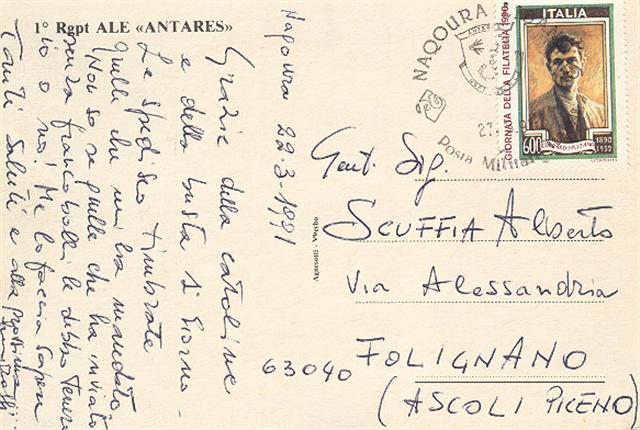 1° Rgpt ALE «ANTARES»
Naqoura 22-3-1991
Grazie della cartoline
e della busta 1° giorno -
Le spedisco timbrate
quelle che mi ha mandato
Non so se quelle che ha inviato
senza francobolli le debbo tenere
io o no! Me lo faccia sapere
Tanti saluti e alla prossima
NAQOURA
Posta Militare
GIORNATA DELLA FILATELIA 1990
ITALIA
600
1890
1932
Agnesotti - Viterbo
Gent. Sig.
SCUFFIA Alberto
Via Alessandria
63040 FOLIGNANO
(ASCOLI PICENO)